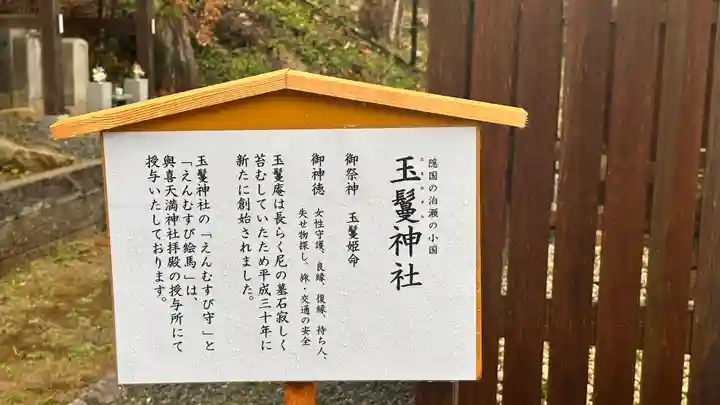 隠国の泊瀬の小国
玉鬘神社
たまかずら
御祭神 玉鬘姫命
御神徳 女性守護、良縁、復縁、待ち人、
失せ物探し、旅・交通の安全
玉鬘庵は長らく尼の墓石寂しく
苔むしていたため平成三十年に
新たに創始されました。
玉鬘神社の「えんむすび守」と
「えんむすび絵馬」は、
與喜天満神社拝殿の授与所にて
授与いたしております。